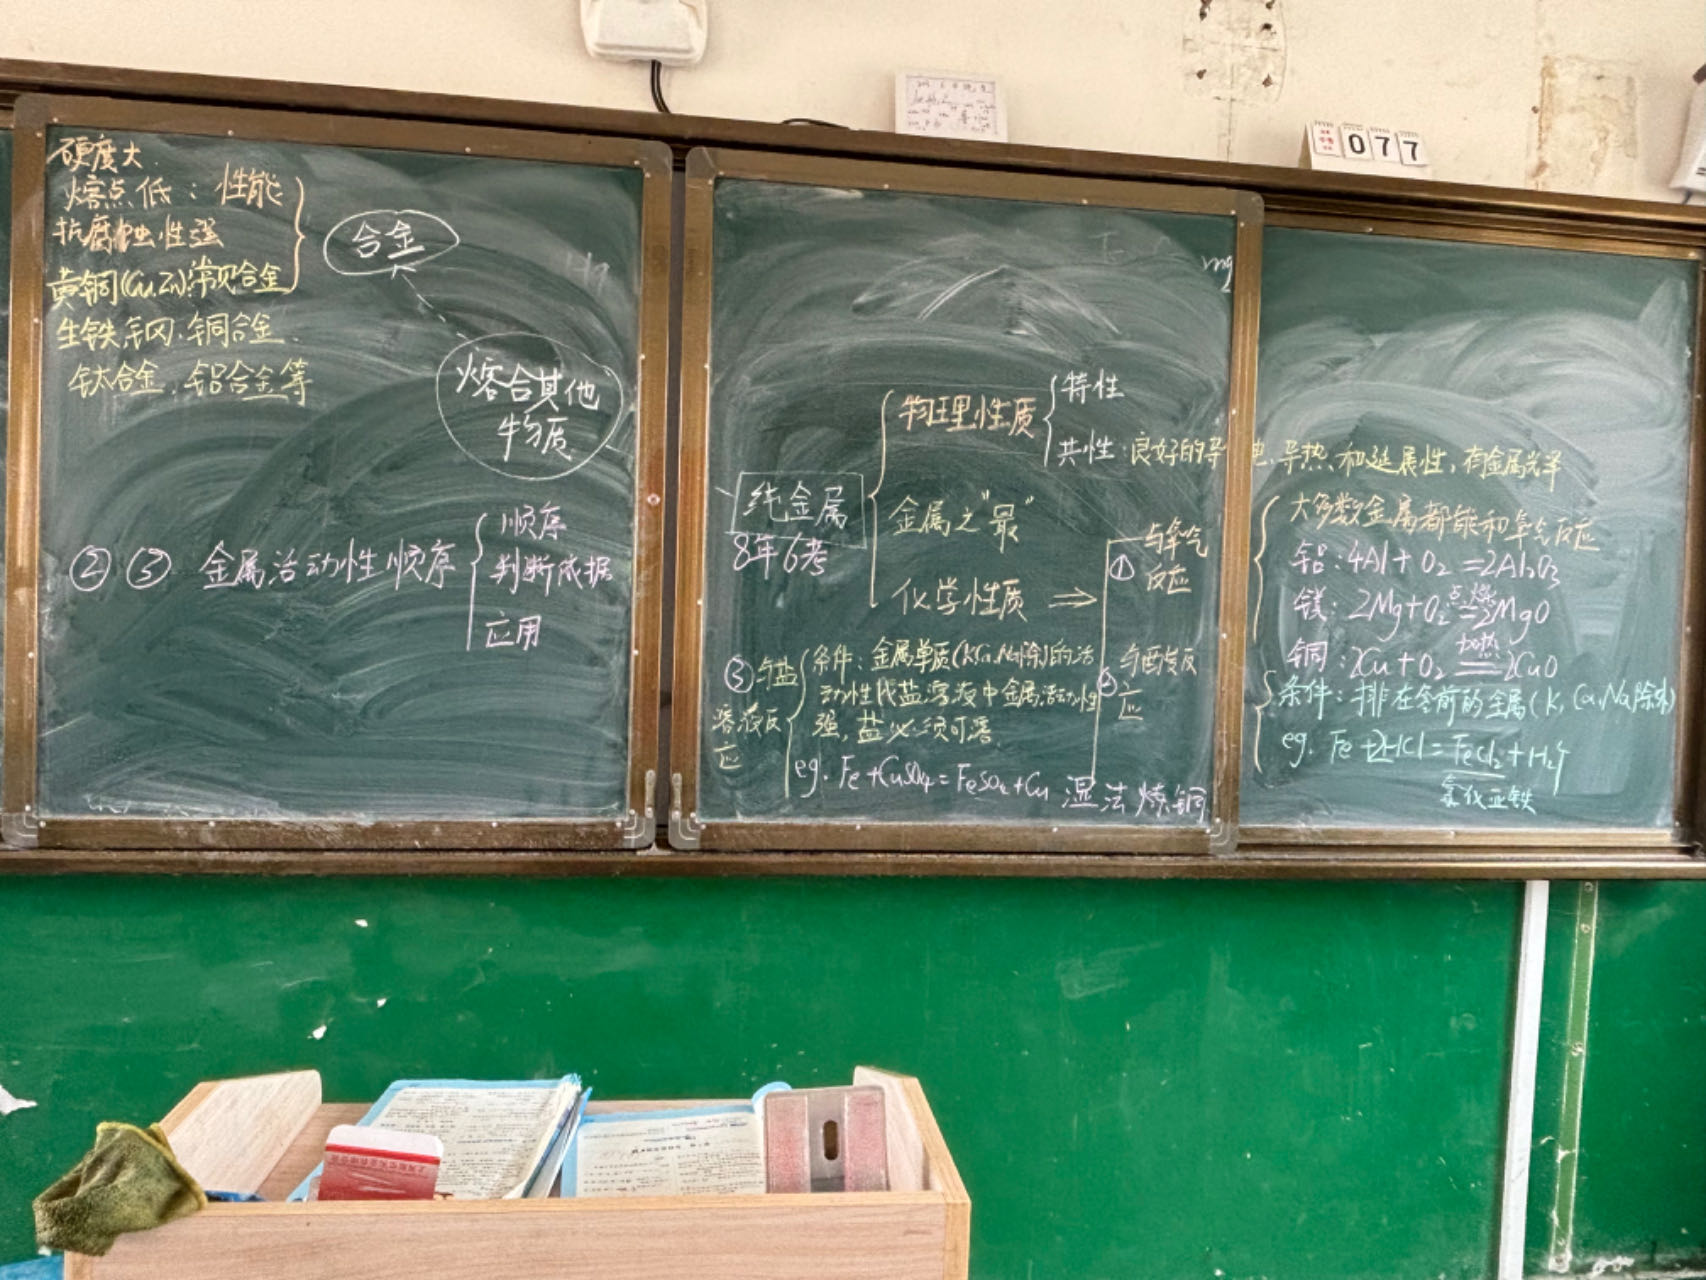 硬度大
熔点低：性能
抗腐蚀性强
黄铜(Cu、Zn)：常见合金
生铁、钢、铜合金、
钛合金、铝合金等
合金
熔合其他
物质
②③ 金属活动性顺序
顺序
判断依据
应用
纯金属
8年6考
物理性质
特性
共性：良好的导电、导热、和延展性，有金属光泽
金属之"最"
化学性质 ⇒
① 与氧气
反应
大多数金属都能和氧气反应
铝：4Al+O₂=2Al₂O₃
镁：2Mg+O₂ 点燃 = 2MgO
铜：2Cu+O₂ 加热 = 2CuO
② 与酸发反
应
条件：排在氢前的金属(K、Ca、Na除外)
eg. Fe+2HCl=FeCl₂+H₂↑
氯化亚铁
③与盐
溶液反
应
条件：金属单质(K、Ca、Na除)的活
动性比盐溶液中金属活动性
强，盐必须可溶.
eg. Fe+CuSO₄=FeSO₄+Cu 湿法炼铜
mg
077